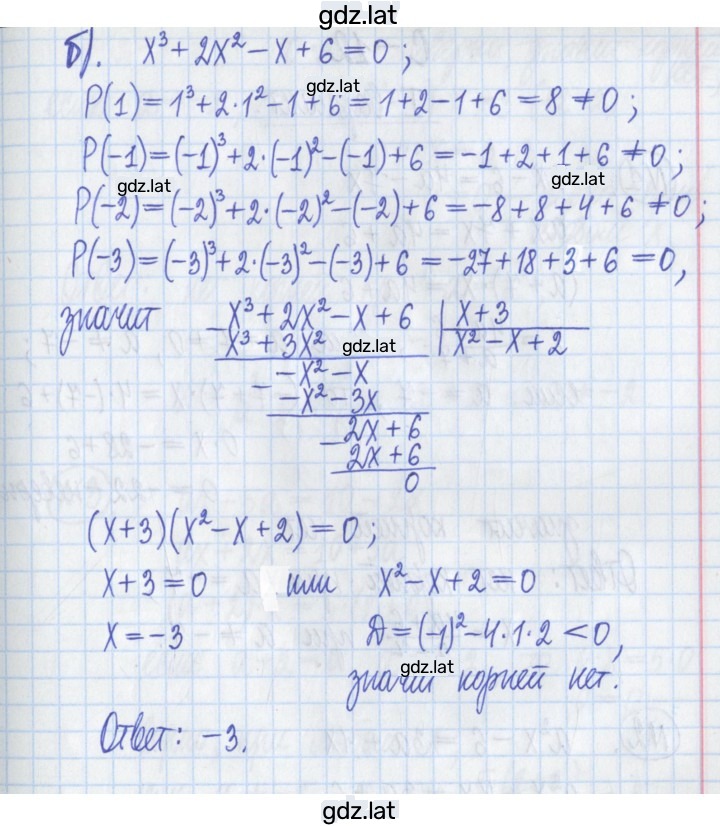 gdz.lat
б). x³ + 2x² − x + 6 = 0 ;
gdz.lat
P(1) = 1³ + 2·1² − 1 + 6 = 1 + 2 − 1 + 6 = 8 ≠ 0 ;
P(−1) = (−1)³ + 2·(−1)² − (−1) + 6 = −1 + 2 + 1 + 6 ≠ 0 ;
gdz.lat gdz.lat
P(−2) = (−2)³ + 2·(−2)² − (−2) + 6 = −8 + 8 + 4 + 6 ≠ 0 ;
P(−3) = (−3)³ + 2·(−3)² − (−3) + 6 = −27 + 18 + 3 + 6 = 0,
значит − x³ + 2x² − x + 6 | x + 3
x³ + 3x² gdz.lat x² − x + 2
− −x² − x
−x² − 3x
− 2x + 6
2x + 6
0
(x + 3)(x² − x + 2) = 0 ;
x + 3 = 0 или x² − x + 2 = 0
x = −3 Д = (−1)² − 4·1·2 < 0,
gdz.lat
значит корней нет.
Ответ: −3.
gdz.lat